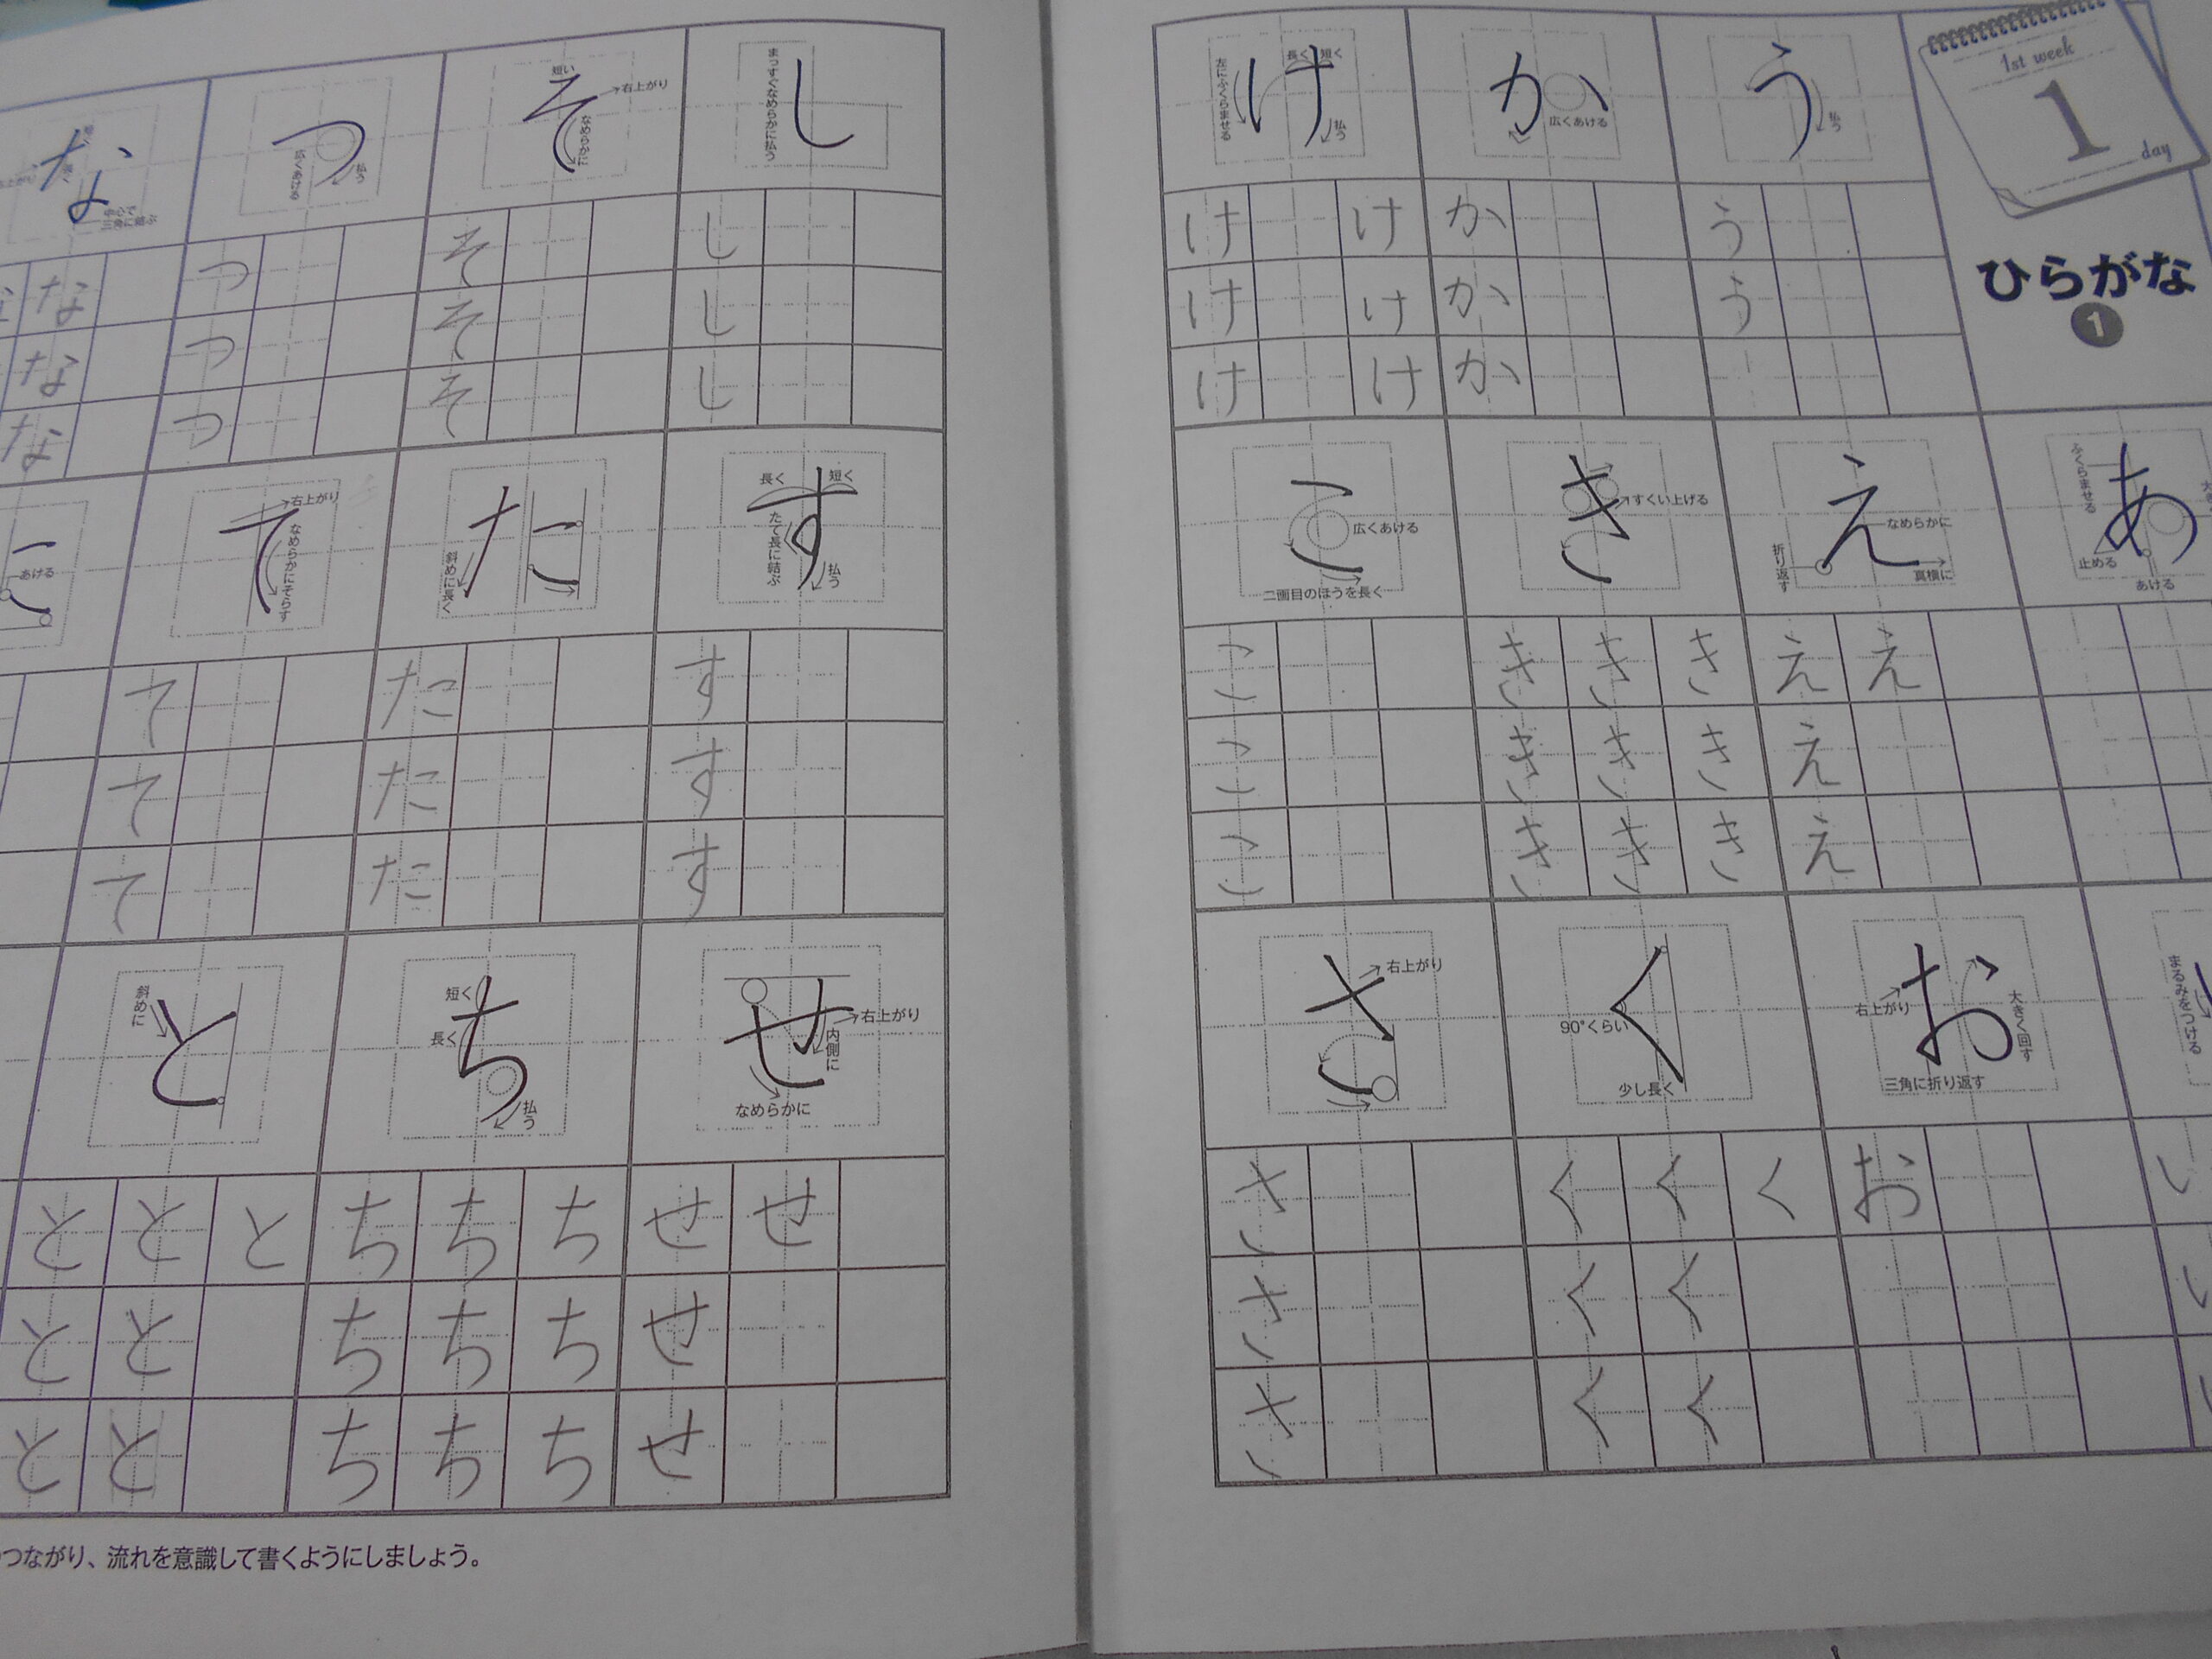 1st week
1
day
ひらがな
1
あ
ふくらませる
止める
あける
い
まるみをつける
い
い
い
う
払う
う
う
え
なめらかに
折り返す
真横に
え え
え
え
お
右上がり
大きく回す
三角に折り返す
お
か
広くあける
か
か
か
き
すくい上げる
き き き
き き き
き き き
く
90°くらい
少し長く
く く く
く く
く く
け
左にふくらませる
長く
短く
払う
け け
け け
け け
こ
広くあける
二画目のほうを長く
こ
こ
こ
さ
右上がり
さ
さ
さ
し
まっすぐなめらかに払う
し
し
し
す
長く
短く
たて長に結ぶ
払う
す
す
す
せ
右上がり
内側に
なめらかに
せ せ
せ
せ
そ
短い
右上がり
なめらかに
そ
そ
そ
た
斜めに長く
た
た
た
ち
短く
長く
払う
ち ち ち
ち ち ち
ち ち ち
つ
広くあける
払う
つ
つ
つ
て
右上がり
なめらかにそらす
て
て
て
と
斜めに
と と と
と と
と と
な
中心で
三角に結ぶ
な な
な
な
あける
つながり、流れを意識して書くようにしましょう。